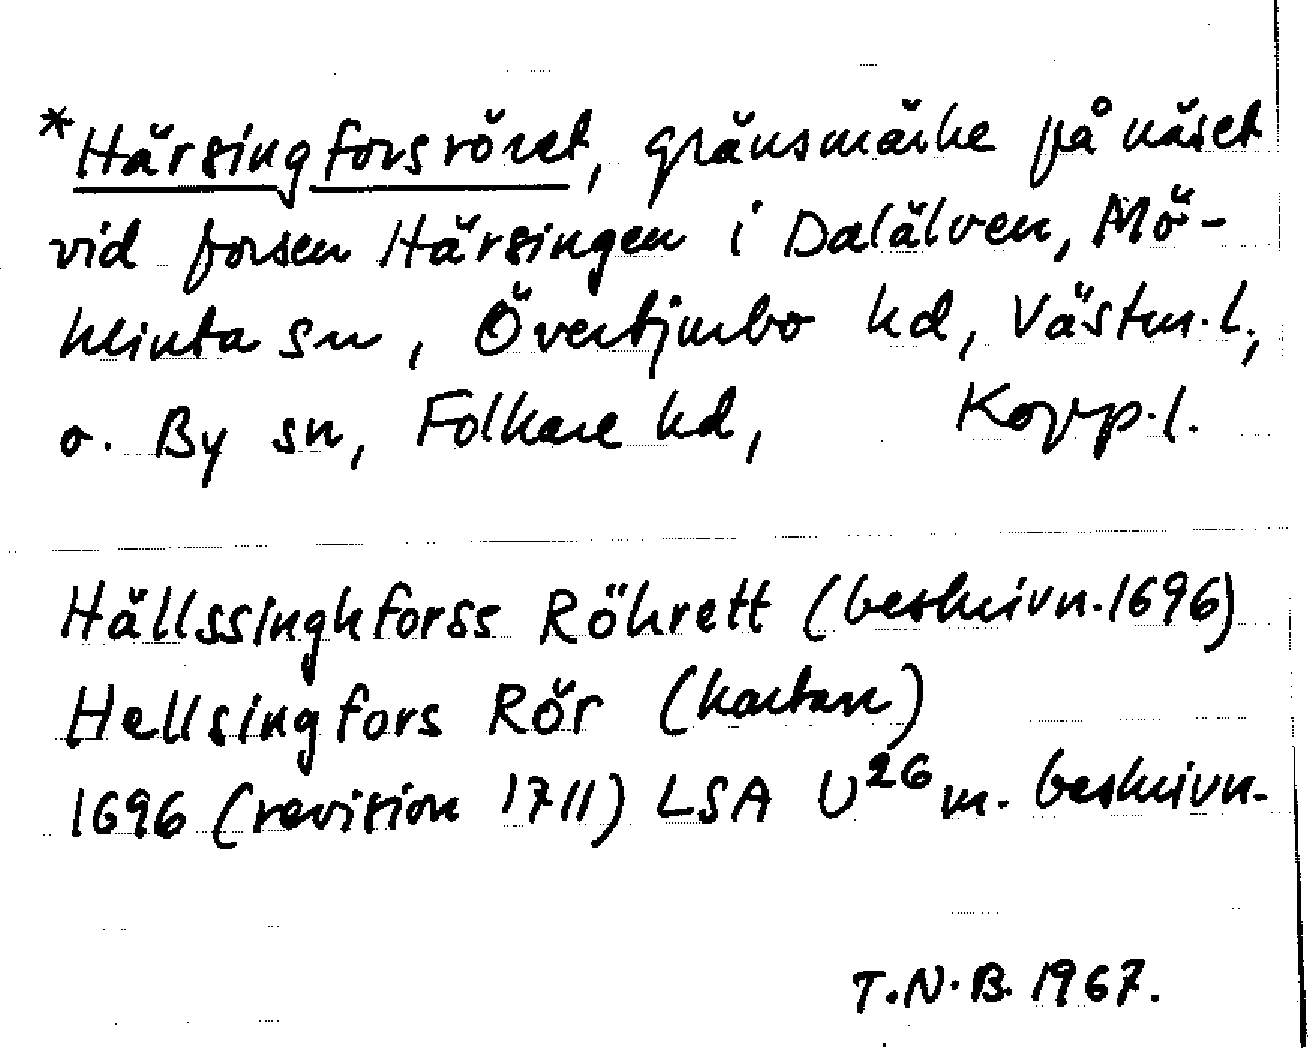 *Härsingforsröret, gränsmärke på näset
vid forsen Härsingen i Dalälven, Mö-
klinta sn, Övertjurbo hd, Västm.l.,
o. By sn, Folkare hd, Kopp.l.
Hällssinghforss Röhrett (beskrivn. 1696)
Hellsingfors Rör (kartan)
1696 (revision 1711) LSA U²⁶ m. beskrivn.
T.N.B. 1967.